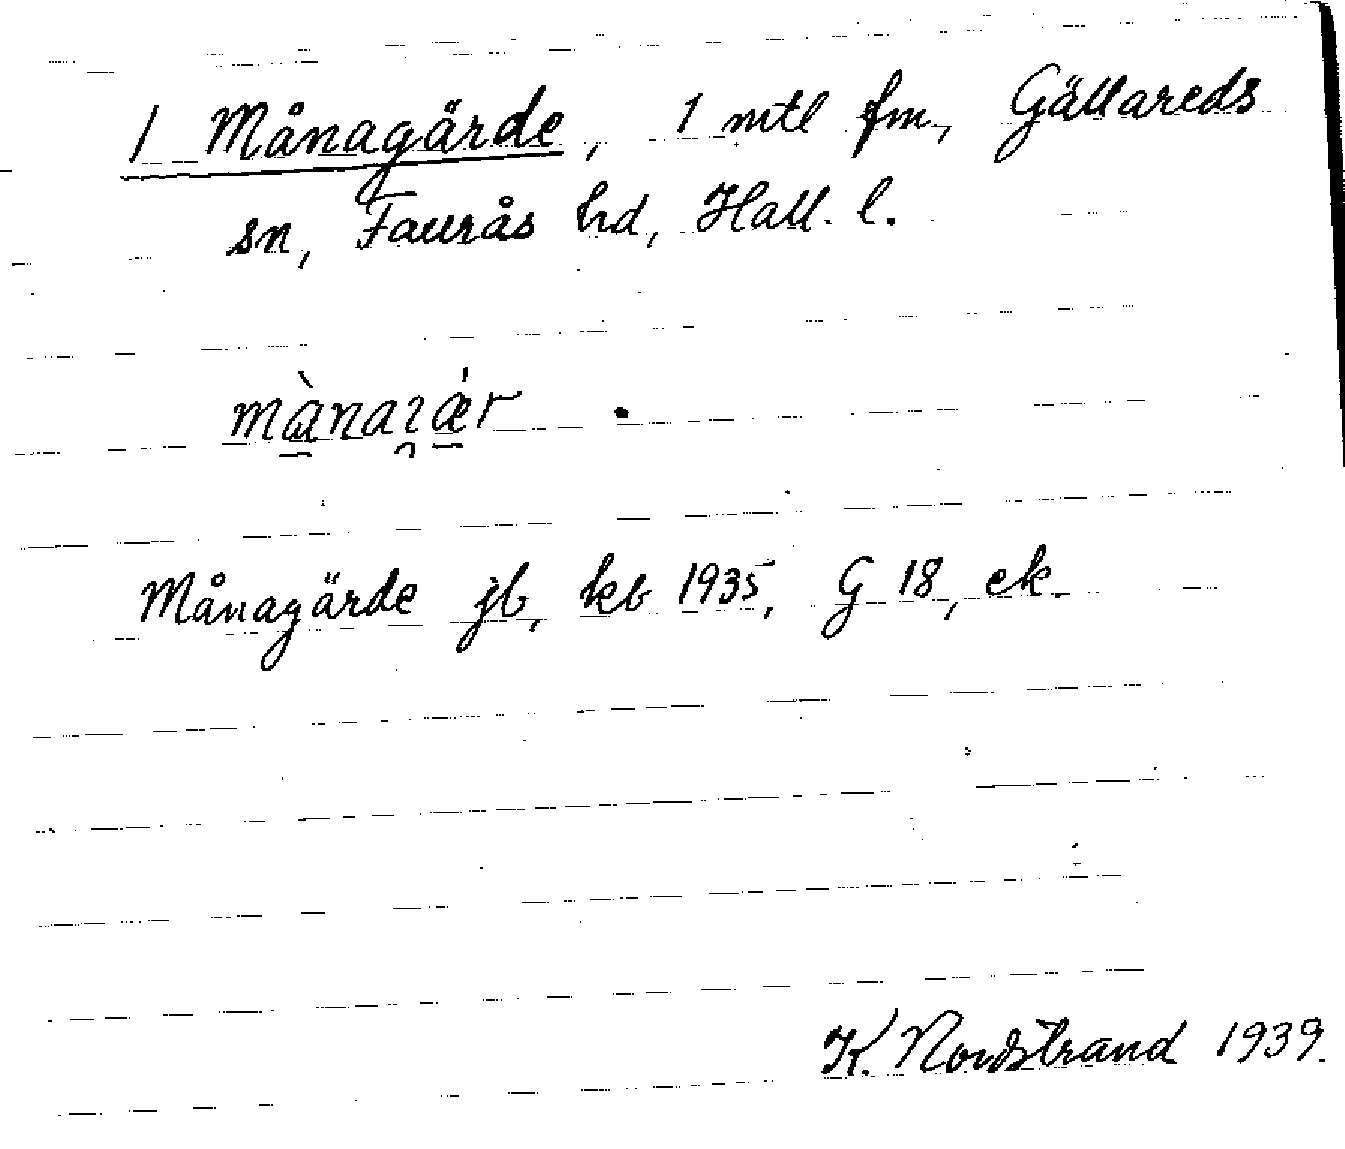 1 Månagärde, 1 mtl fm, Gällareds
sn, Faurås hd, Hall. l.
Månagärde jb, kb 1935, G 18, ek.
K. Nordstrand 1939.